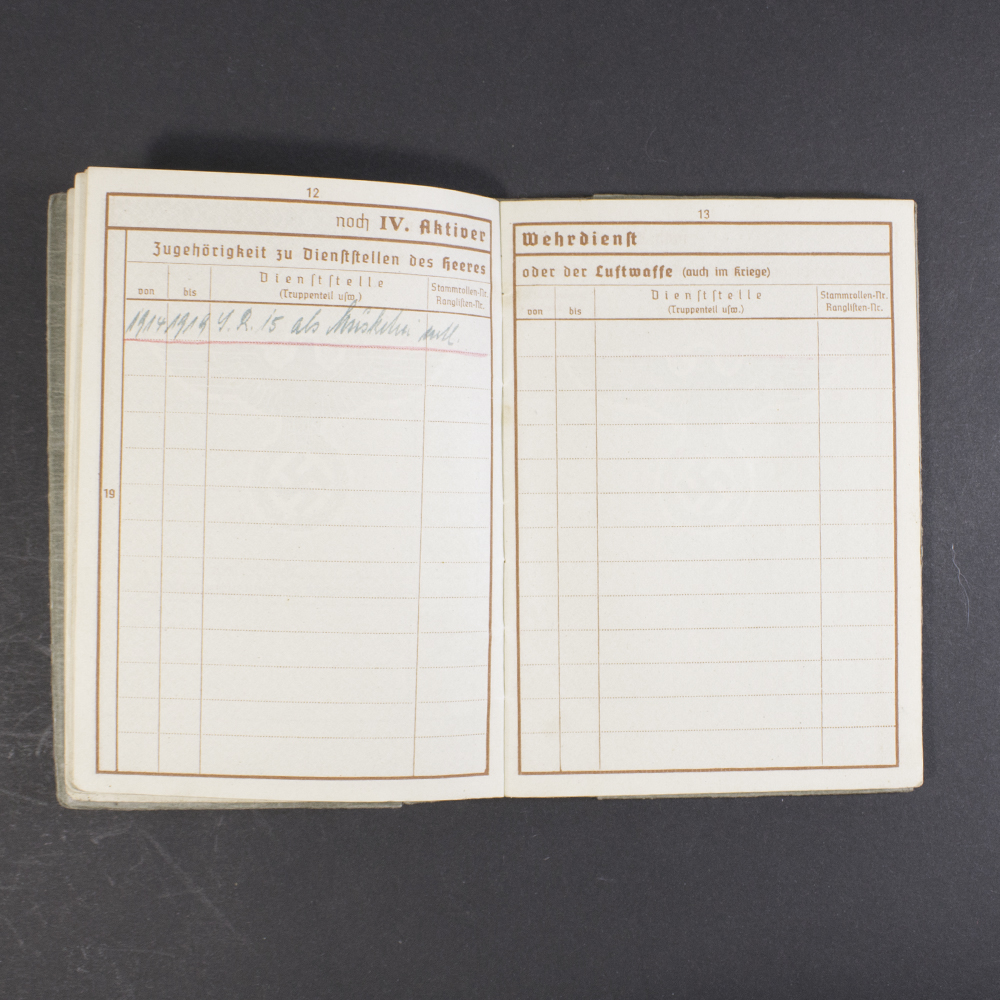 12
noch IV. Aktiver
Zugehörigkeit zu Dienststellen des Heeres
von
bis
Dienststelle
(Truppenteil usw.)
Stammrollen-Nr.
Ranglisten-Nr.
1914 1919 J. R. 15 als
19
13
Wehrdienst
oder der Luftwaffe (auch im Kriege)
von
bis
Dienststelle
(Truppenteil usw.)
Stammrollen-Nr.
Ranglisten-Nr.